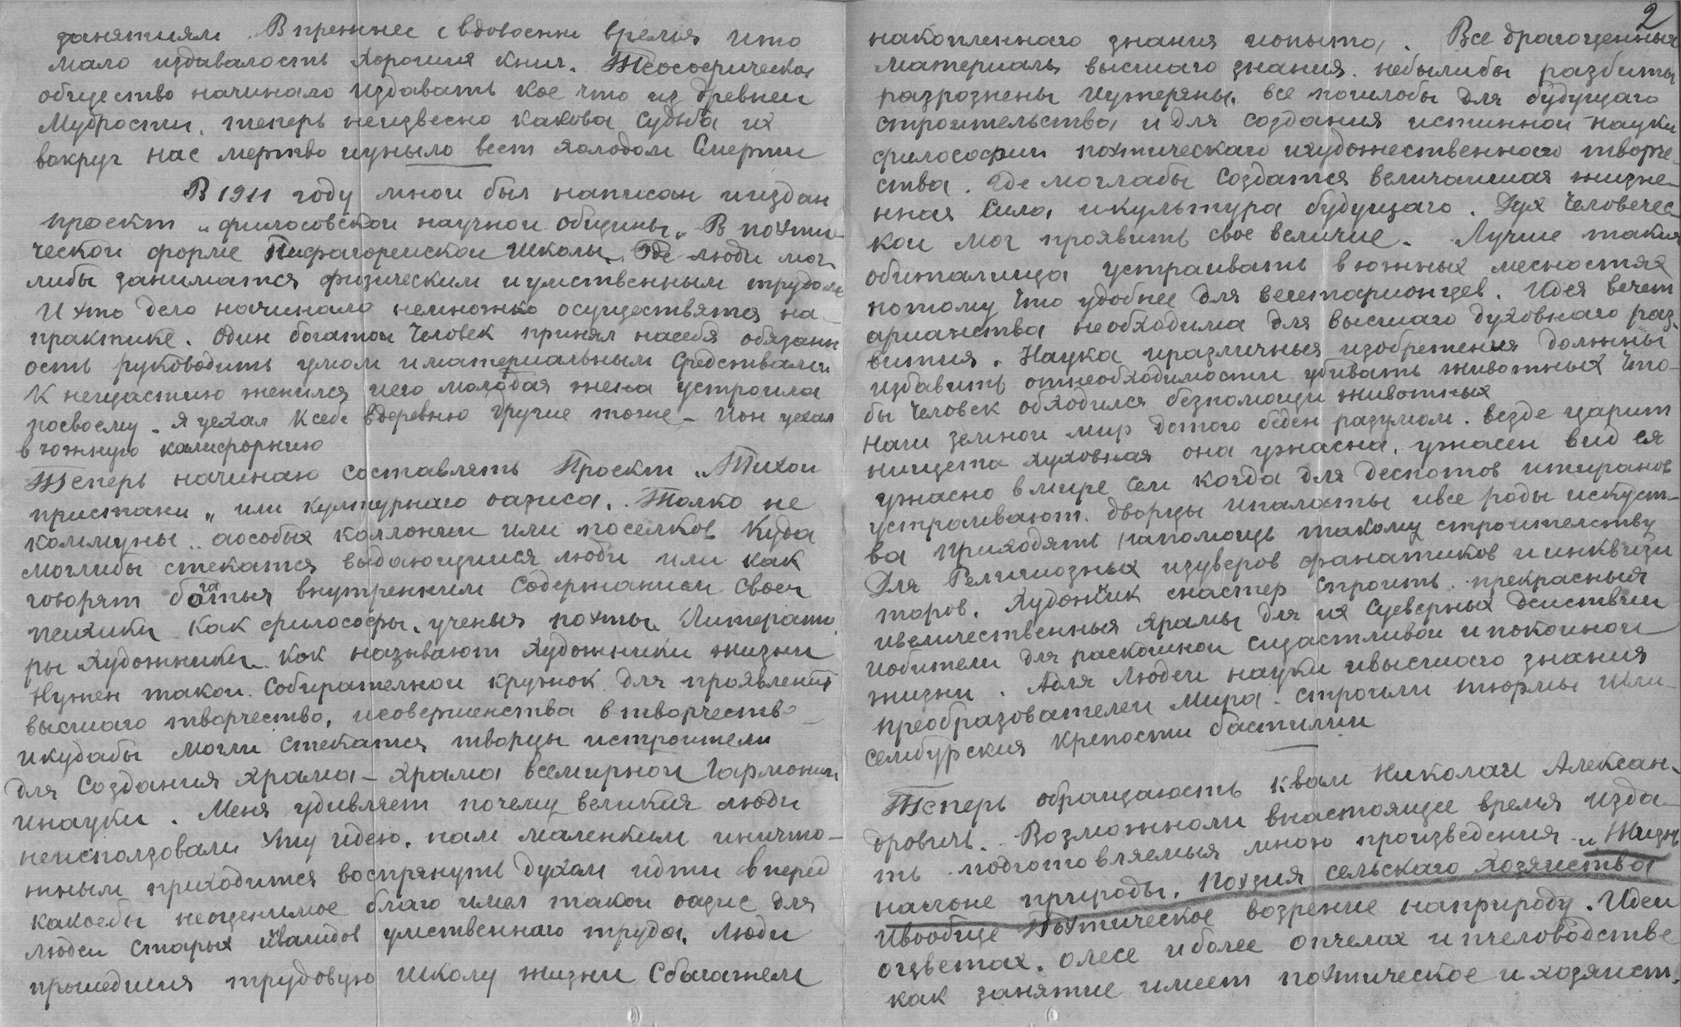 занятиям. Впрежнее с вдовоенн время што
мало издавалость хороших книг. Теософическая
общество начинало издавать кое что из древней
Мудрости, теперь неизвесно какова Судьба их
вокруг нас мертво иуныло веет холодом Смерти
В 1911 году мной был написан ииздан
проект „философской научной общины„ В поэти-
ческой форме Пифагорейской Школы. Где люди мог
либы заниматся физическим иумственным трудом
И это дело начинало немножко осуществятся на
практике. Один богатой человек принял насебя обязанн
ость руководить умом иматериальным средствами
К несчастию женился иего молодая жена устроила
посвоему. Я уехал Ксебе вдеревню другие тоже – Ион уехал
в южную калифорнию
Теперь начинаю составлять Проект „Тихой
пристани„ или культурнаго оазиса. Толко не
коммуны.. аособых коллоний или поселков Куда
моглибы стекатся выдающиися люди или как
говорят богатыя внутренним Содержанием Своей
психики как философы, ученыя поэты Литерато
ры Художники. Как называют Художники жизни
Нужен такой Собирателной кружок для проявления
высшаго творчество, исовершенства в творчество
икудабы могли Стекатся творцы истроители
для Создания храма – храма всемирной Гармонии
инауки. Меня удивляет почему великия люди
неисползовали эту идею. нам маленким иничто-
жным приходится воспрянуть духом идти вперед
какоебы неоценимое благо имел такой оазис для
людей старых инвалидов умственнаго труда. Люди
прошедшия трудовую школу жизни Сбагатем
2
накопленнаго знания иопыта. Все драгоценныя
материалы высшаго знания. небылибы разбиты
разрознены иутеряны. все пошлобы для будущаго
строительства и для создания истинной науки
философии поэтическаго ихудожественнаго творче-
ства. Где моглабы Создатся величайшая жизне-
нная Сила, икультура будущаго. Дух Человечес
кой мог проявить свое величие. Лучше такия
обиталища устраивать в южных месностях
потому что удобнее для вегетарианцев. Идея вегет
арианства необходима для высшаго духовнаго раз.
вития. Наука иразличныя изобретения должны
избавить отнеобходимости убивать животных Что-
бы Человек обходился безпомощи животных
Наш земной мир дотого беден разумом. везде царит
нищета духовная она ужасна, ужасен вид ея
ужасно вмире Сем когда для деспотов итиранов
устроивают. дворцы ипалаты ивсе роды искуст-
ва приходять напомощь такому строителству
Для Религиозных изуверов фанатиков и инквизи
торов. Художник счастер Строить прекрасныя
ивеличественныя храмы для их Суеверных действий
иобители для раскошной сщастливой и покойной
жизни. Адля Людей науки ивысшаго знания
преобразователей Мира. строили тюрмы Шли-
селбурския крепости бастилии
Теперь обращаюсть Квам Николай Алексан.
дрович. Возможноли внастоящее время изда-
ть подготовляемыя мною произведения. „Жизнь
налоне природы. Поэзия сельскаго хозяйства
Ивообще Поэтическое возрение наприроду. Идеи
оцветах. олесе иболее опчелах и пчеловодстве
как занятие имеет поэтическое и хозяйст.